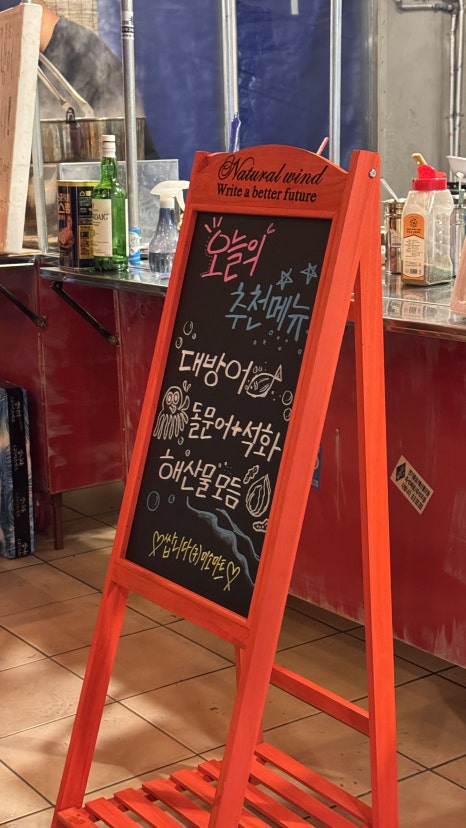 Natural wind
Write a better future
오늘의
추천메뉴
대방어
돌문어+석화
해산물모듬